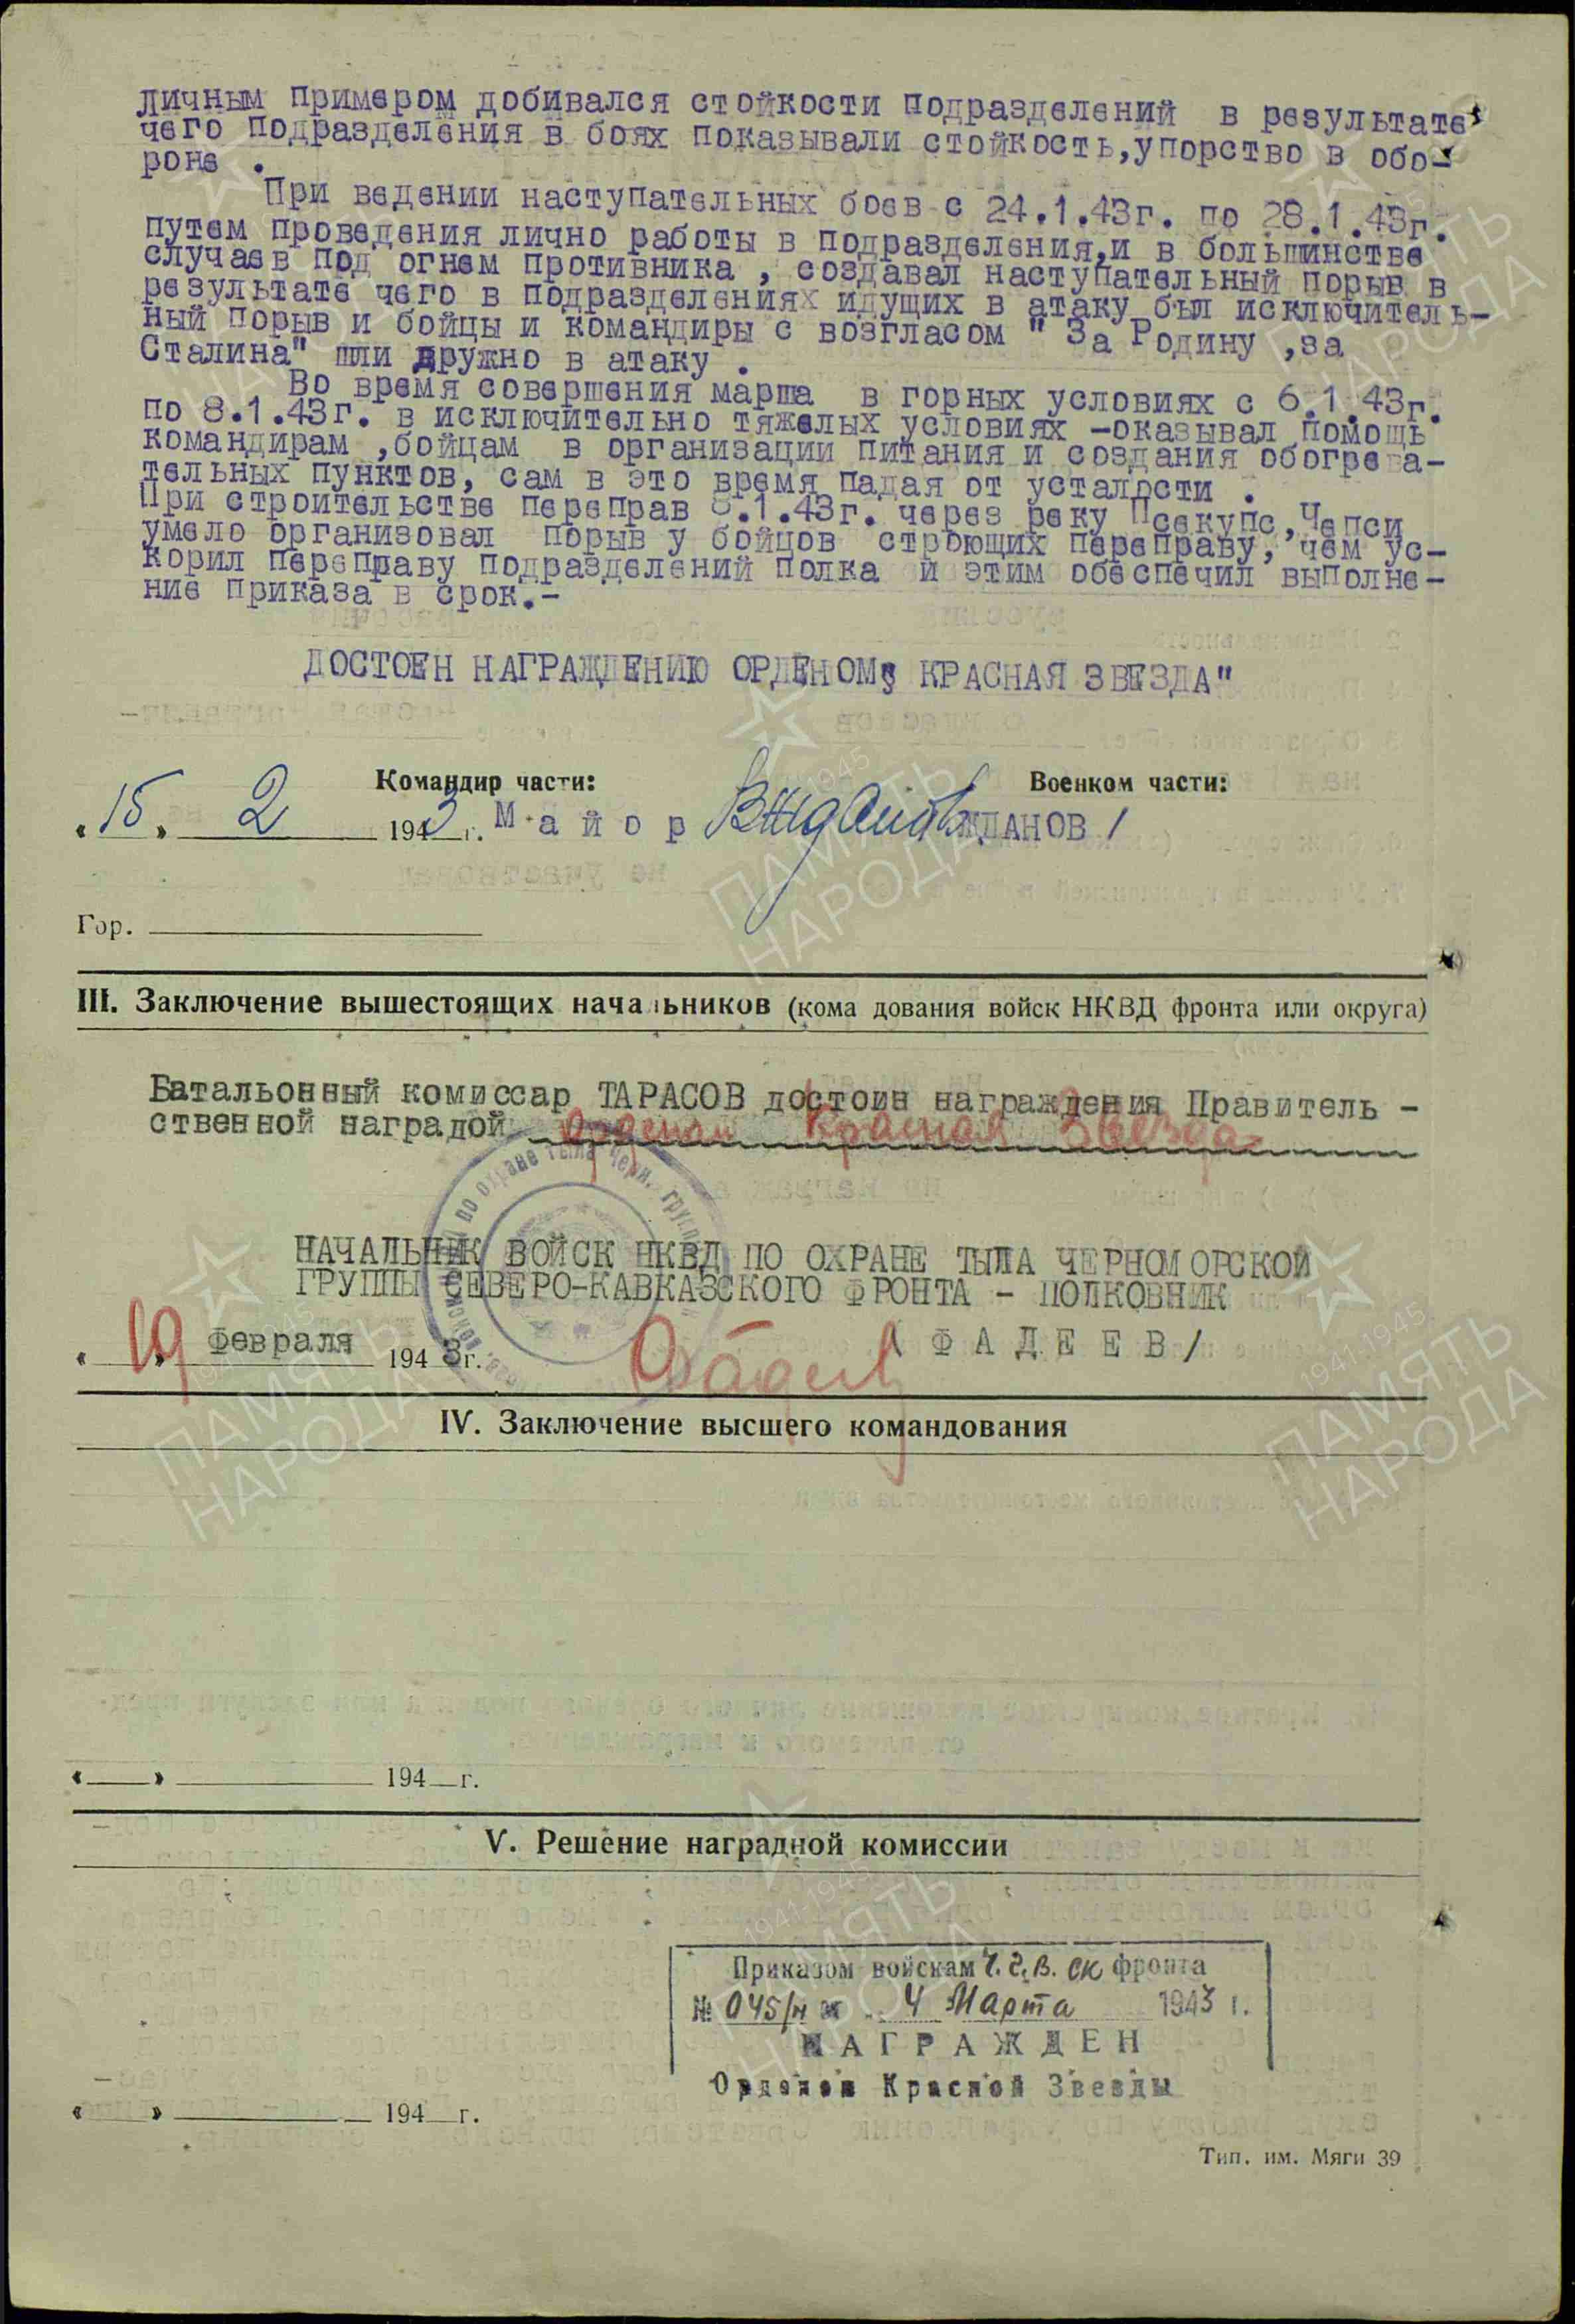 личным примером добивался стойкости подразделений в результате
чего подразделения в боях показывали стойкость,упорство в обо-
роне .
При ведении наступательных боев с 24.1.43г. по 28.1.43г.
путем проведения лично работы в подразделения,и в большинстве
случаев под огнем противника , создавал наступательный порыв в
результате чего в подразделениях идущих в атаку был исключитель-
ный порыв и бойцы и командиры с возгласом " За Родину ,за
Сталина" шли дружно в атаку .
Во время совершения марша в горных условиях с 6.1.43г.
по 8.1.43г. в исключительно тяжелых условиях -оказывал помощь
командирам ,бойцам в организации питания и создания обогрева-
тельных пунктов, сам в это время падая от усталости .
При строительстве переправ 8.1.43г. через реку Псекупс,Чепси
умело организовал порыв у бойцов строющих переправу, чем ус-
корил переправу подразделений полка и этим обеспечил выполне-
ние приказа в срок.-
ДОСТОЕН НАГРАЖДЕНИЮ ОРДЕНОМ" КРАСНАЯ ЗВЕЗДА"
Командир части: Военком части:
«15» 2 1943 г. Майор ВЖданов ЖДАНОВ /
Гор.
III. Заключение вышестоящих начальников (кома дования войск НКВД фронта или округа)
Батальонный комиссар ТАРАСОВ достоин награждения Правитель -
ственной наградой орденом Красная Звезда
НАЧАЛЬНИК ВОЙСК НКВД ПО ОХРАНЕ ТЫЛА ЧЕРНОМОРСКОЙ
ГРУППЫ СЕВЕРО-КАВКАЗСКОГО ФРОНТА - ПОЛКОВНИК
«19» февраля 1943г. Фадеев / ФАДЕЕВ /
IV. Заключение высшего командования
« » 194 г.
V. Решение наградной комиссии
Приказом войскам Ч.Г.В. СК фронта
№ 045/н 4 Марта 1943 г.
НАГРАЖДЕН
Орденом Красной Звезды
« » 194 г.
Тип. им. Мяги 39
1941-1945
ПАМЯТЬ
НАРОДА